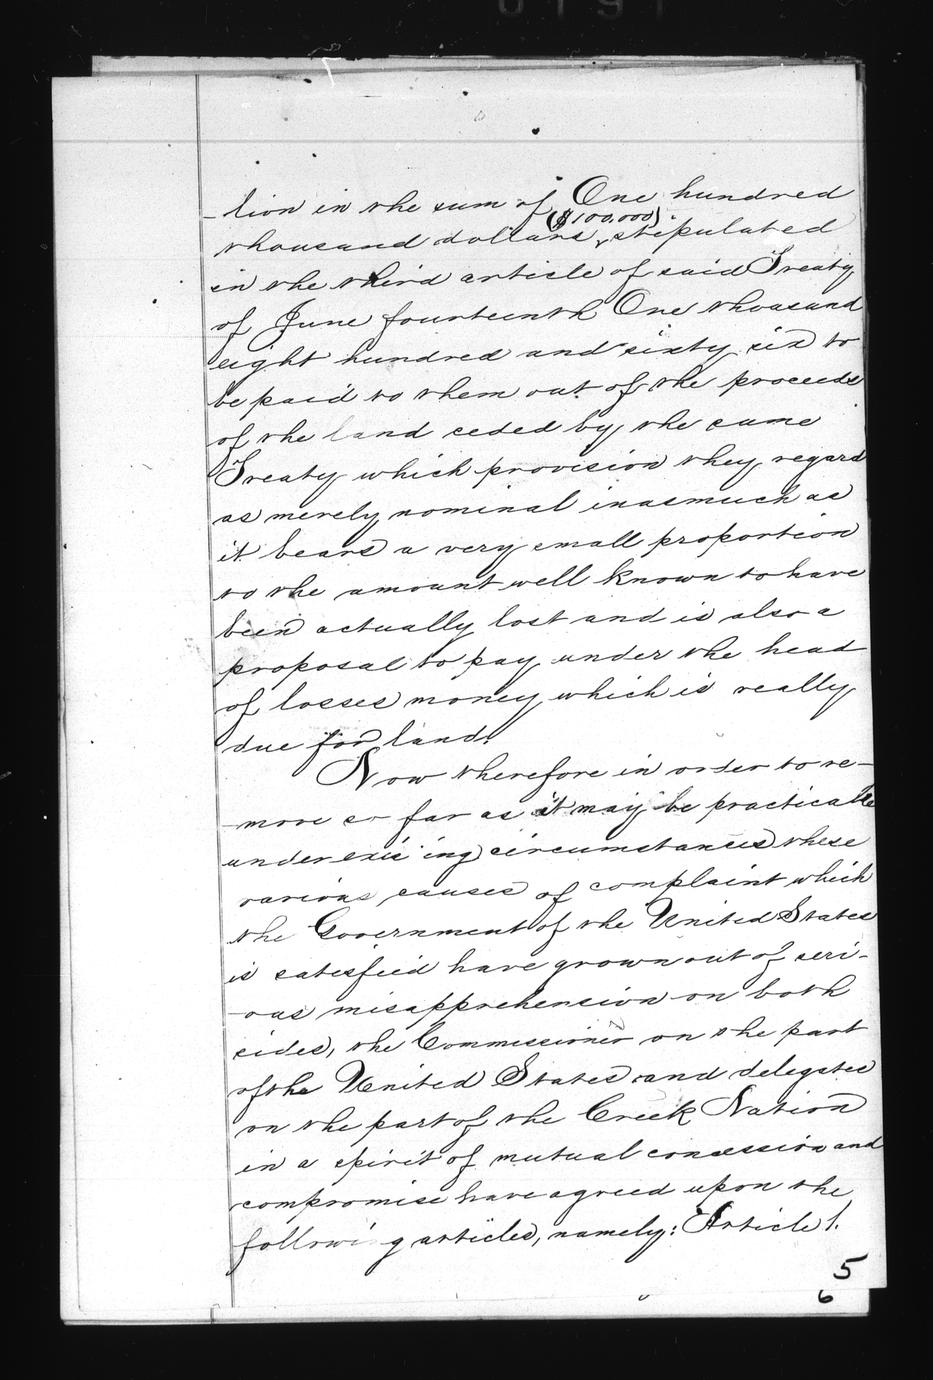 -tion in the sum of One hundred
($100,000)
thousand dollars, stipulated
in the third article of said Treaty
of June fourteenth One thousand
eight hundred and sixty six to
be paid to them out of the proceeds
of the land ceded by the same
Treaty which provision they regard
as merely nominal inasmuch as
it bears a very small proportion
to the amount well known to have
been actually lost and is also a
proposal to pay under the head
of losses money which is really
due for land.
Now therefore in order to re-
move so far as it may be practicable
under exis ing circumstances these
various causes of complaint which
the Government of the United States
is satisfied have grown out of seri-
-ous misapprehension on both
sides, the Commissioner on the part
of the United States and delegates
on the part of the Creek Nation
in a spirit of mutual concession and
compromise have agreed upon the
followi g articles, namely: Article 1.
5
6